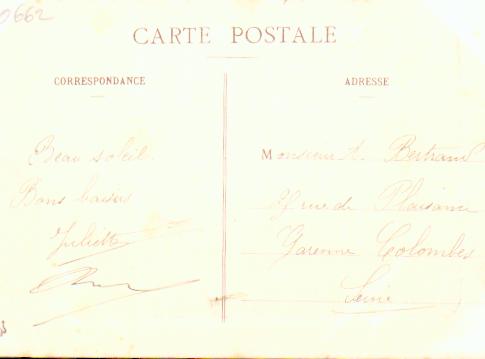 0662
CARTE POSTALE
CORRESPONDANCE
ADRESSE
Beau soleil.
Bons baisers
Juliette
Monsieur A. Bertrand
rue de Plaisance
Garenne Colombes
Seine